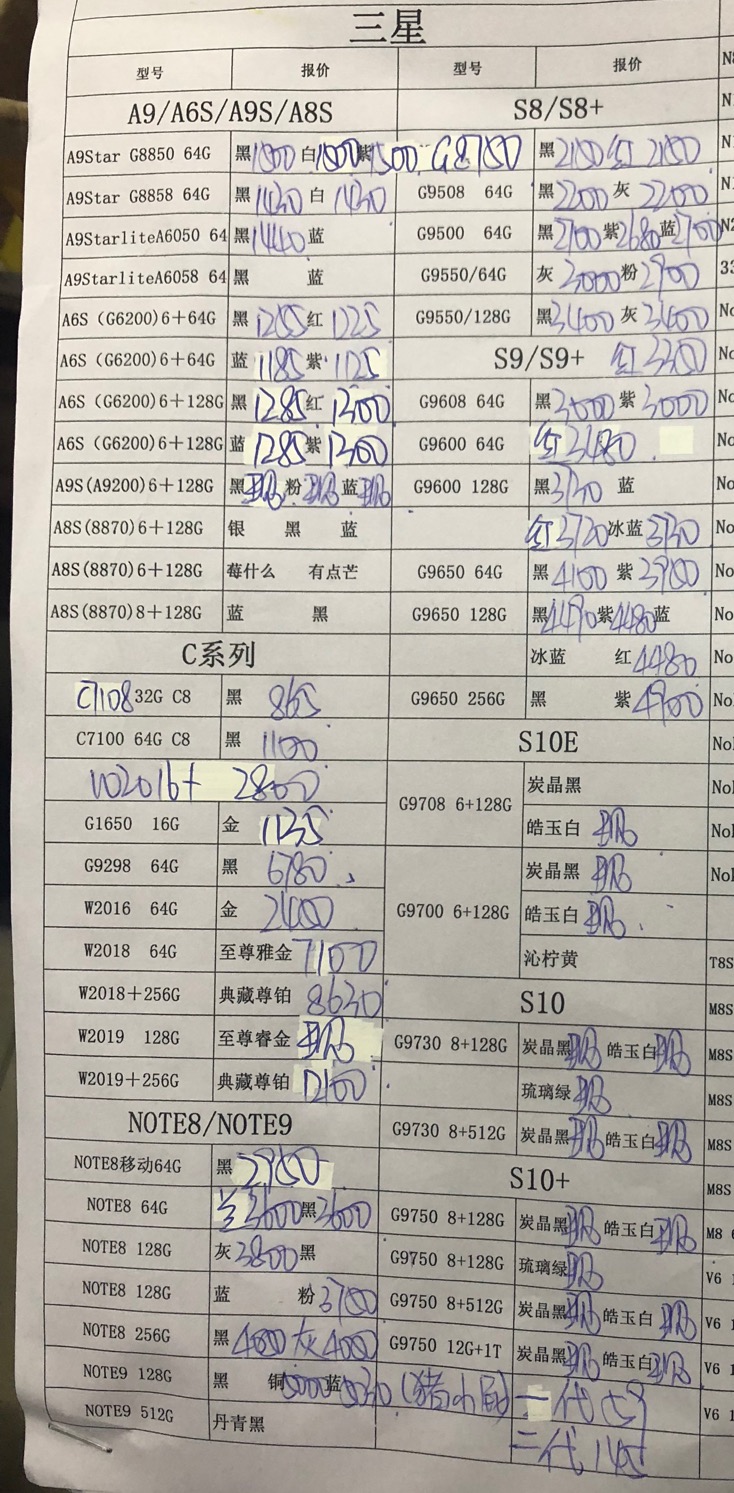 三星
型号 报价 型号 报价
A9/A6S/A9S/A8S S8/S8+
A9Star G8850 64G 黑1500 白1500 紫1500 G8750 黑2150 红2150
A9Star G8858 64G 黑1430 白1430 G9508 64G 黑2200 灰2200
A9StarliteA6050 64 黑1440 蓝 G9500 64G 黑2700 紫2680 蓝2700
A9StarliteA6058 64 黑 蓝 G9550/64G 灰3000 粉2900
A6S (G6200)6+64G 黑1255 红1225 G9550/128G 黑3400 灰3400
A6S (G6200)6+64G 蓝1185 紫1125 S9/S9+ 红3300
A6S (G6200)6+128G 黑1285 红1300 G9608 64G 黑3000 紫3000
A6S (G6200)6+128G 蓝1285 紫1300 G9600 64G 红3480
A9S(A9200)6+128G 黑 粉 蓝 G9600 128G 黑3730 蓝
A8S(8870)6+128G 银 黑 蓝 红3720 冰蓝3730
A8S(8870)6+128G 莓什么 有点芒 G9650 64G 黑4100 紫3900
A8S(8870)8+128G 蓝 黑 G9650 128G 黑4490 紫4480 蓝
C系列 冰蓝 红4480
C7108 32G C8 黑 865 G9650 256G 黑 紫4900
C7100 64G C8 黑 1100 S10E
W2016+ 2800 G9708 6+128G 炭晶黑
G1650 16G 金 1135 皓玉白
G9298 64G 黑 6780 G9700 6+128G 炭晶黑
W2016 64G 金 2400 皓玉白
W2018 64G 至尊雅金 7100 沁柠黄 T8S
W2018+256G 典藏尊铂 8630 S10 M8S
W2019 128G 至尊睿金 G9730 8+128G 炭晶黑 皓玉白 M8S
W2019+256G 典藏尊铂 12100 琉璃绿 M8S
NOTE8/NOTE9 G9730 8+512G 炭晶黑 皓玉白 M8S
NOTE8移动64G 黑 2950 S10+ M8S
NOTE8 64G 兰3600 黑3600 G9750 8+128G 炭晶黑 皓玉白 M8
NOTE8 128G 灰3800 黑 G9750 8+128G 琉璃绿 V6
NOTE8 128G 蓝 粉3700 G9750 8+512G 炭晶黑 皓玉白 V6
NOTE8 256G 黑4000 灰4000 G9750 12G+1T 炭晶黑 皓玉白 V6
NOTE9 128G 黑 铜5000 蓝5030 一代 V6
NOTE9 512G 丹青黑 二代145